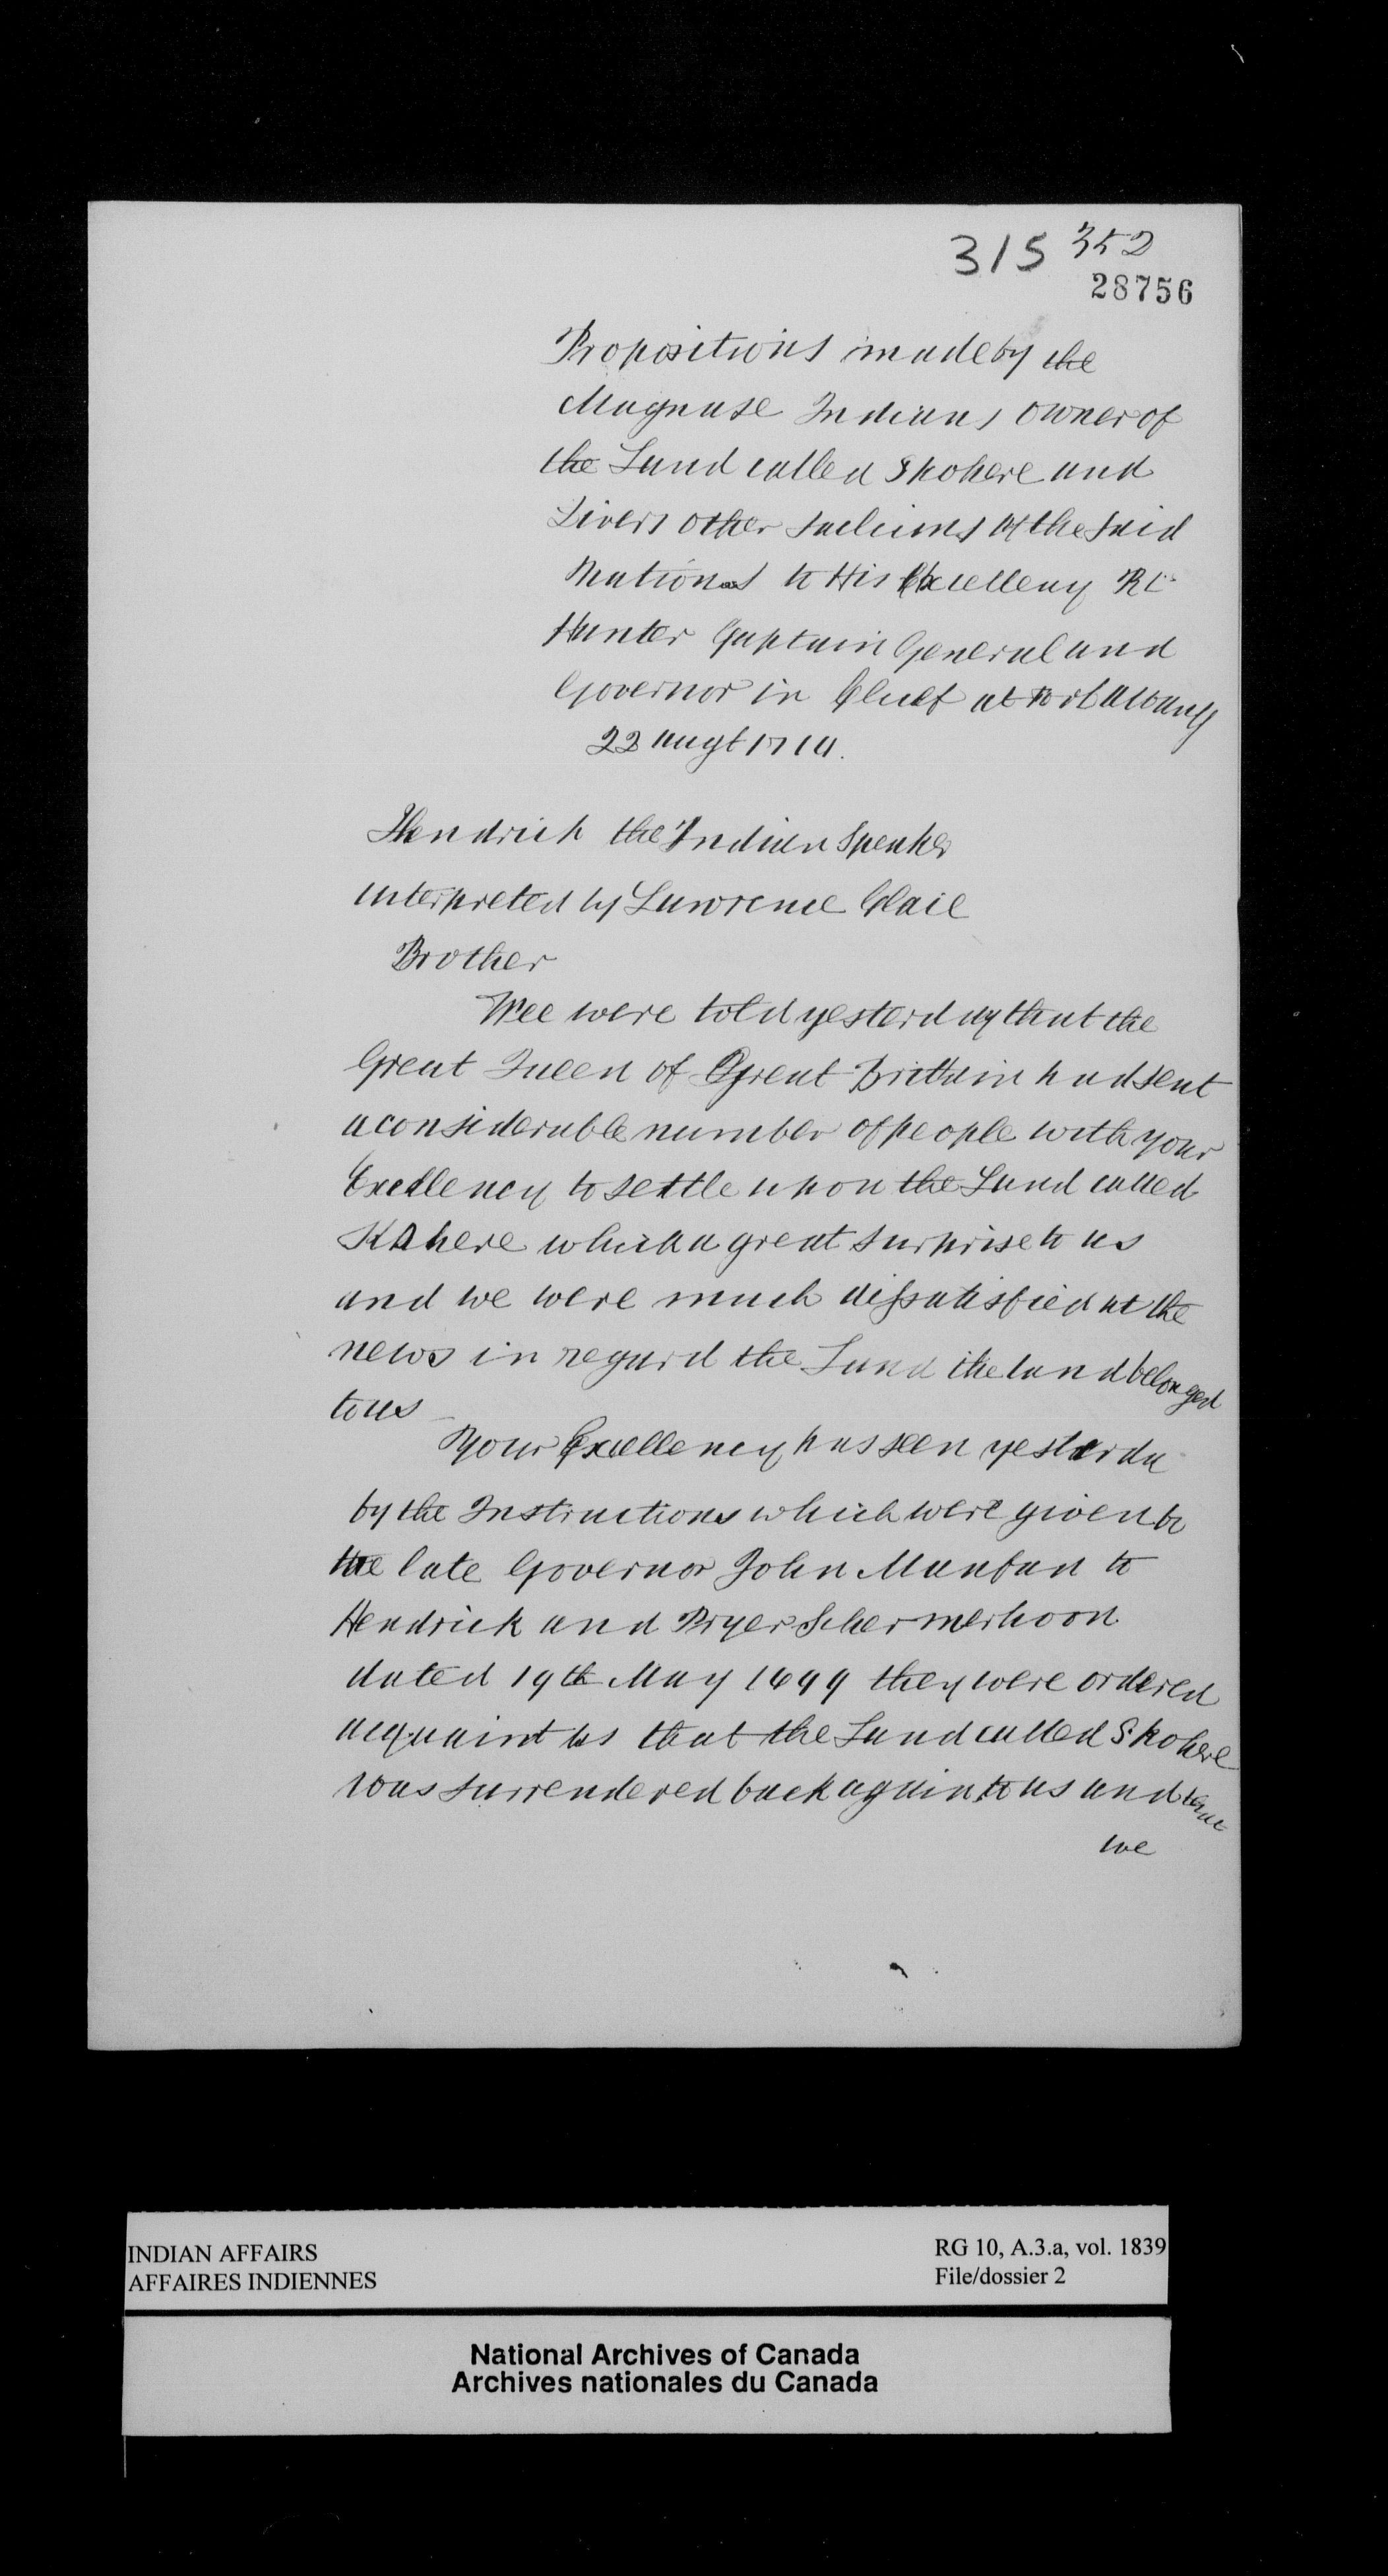 315 352
28756
Propositions made by the
Maquase Indians owner of
the Land called Skohere and
Divers other sachims of the said
Nations to His Excellency Rt
Hunter Captain General and
Governor in Chief at Fort Albany
22 Augt 1710.
Hendrick the Indian Speaker
interpreted by Lawrence Claie
Brother
Wee were told yesterday that the
Great Queen of Great Brittain had sent
a considerable number of people with your
Excellency to settle upon the Land called
Skohere which a great surprise to us
and we were much dissatisfied at the
news in regard the Land the land belonged
to us
Your Excellency has seen yesterda
by the Instructions which were given by
the late Governor John Nanfan to
Hendrick and Ryer Schermerhoorn
dated 19th May 1699 they were ordered
acquaint us that the Land called Skohere
was surrendered back again to us and that
we
INDIAN AFFAIRS
AFFAIRES INDIENNES
RG 10, A.3.a, vol. 1839
File/dossier 2
National Archives of Canada
Archives nationales du Canada